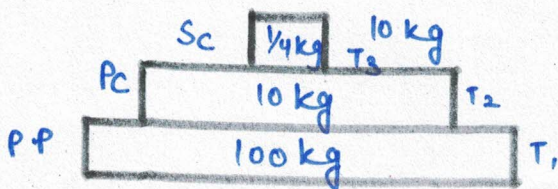 Sc 1/4 kg T3 10 kg
Pc 10 kg T2
P.P 100 kg T1